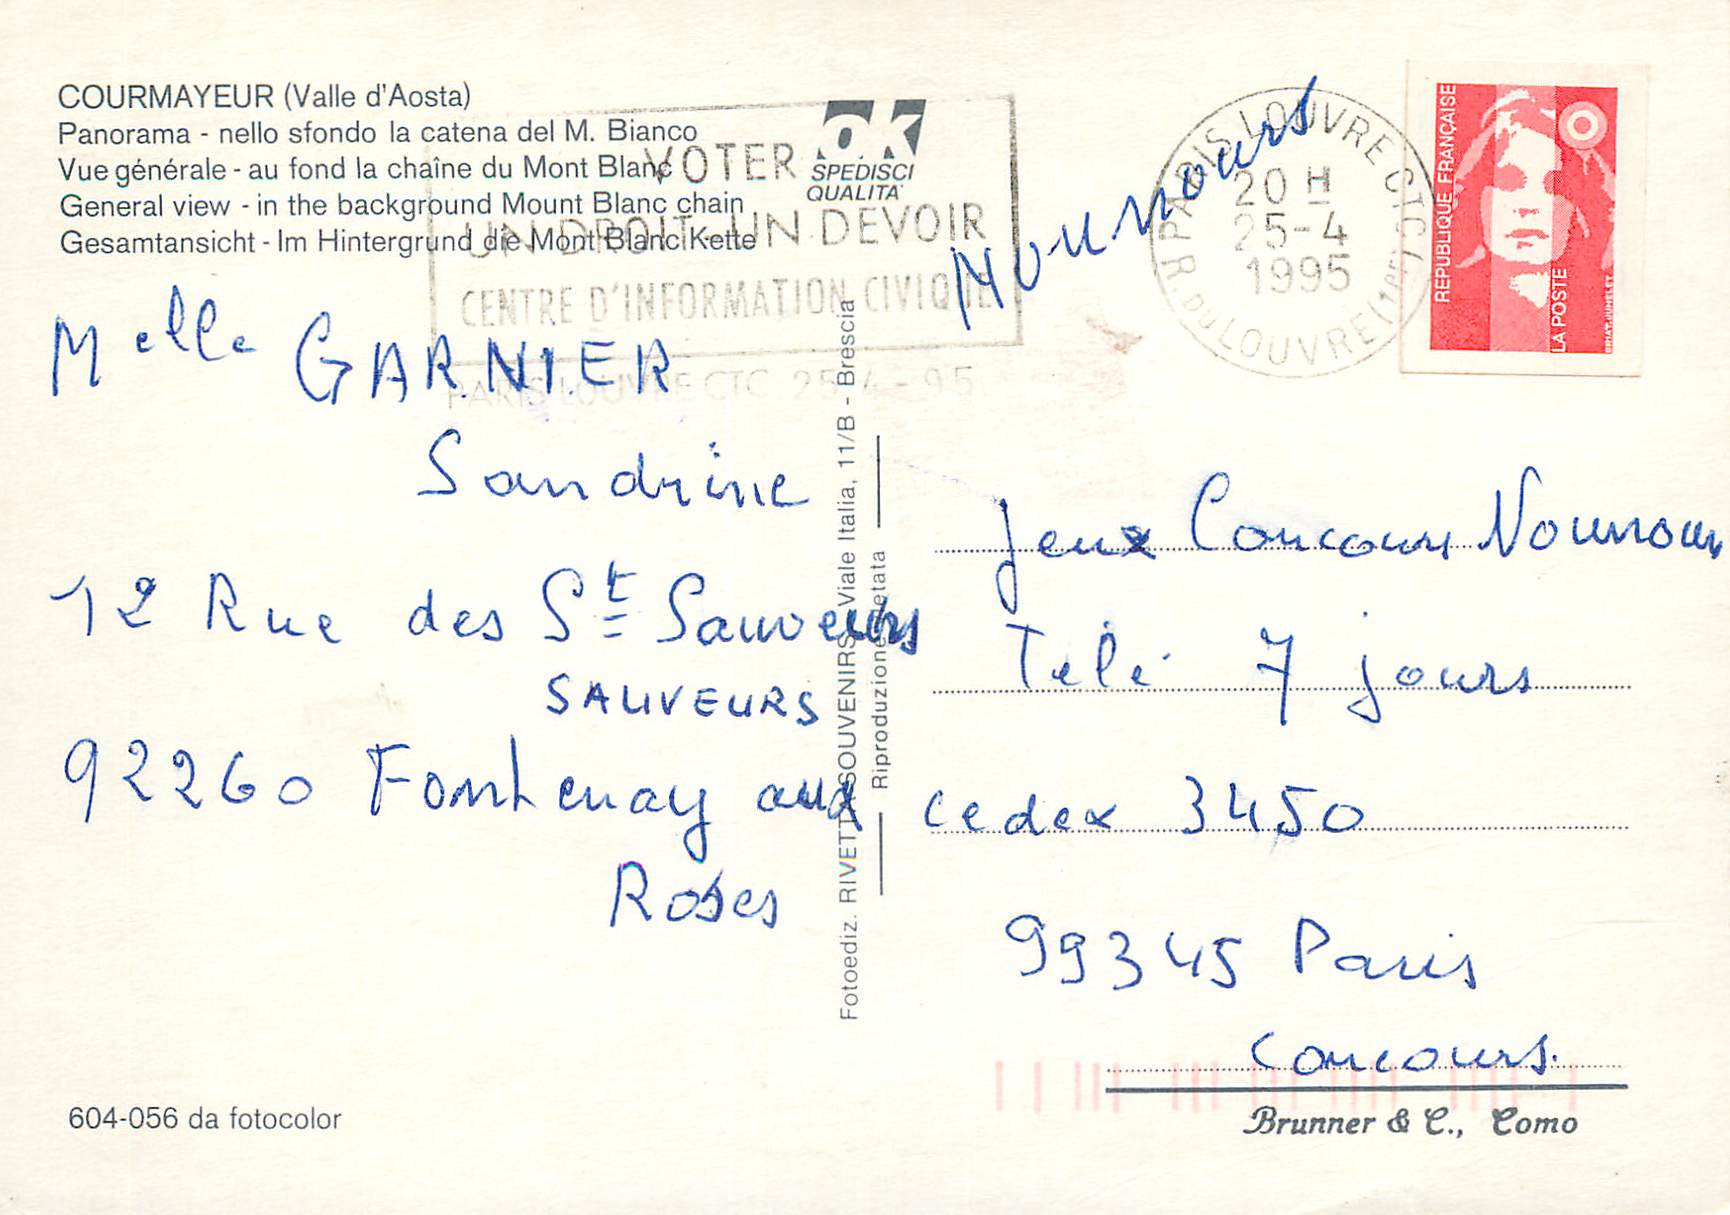 COURMAYEUR (Valle d'Aosta)
Panorama - nello sfondo la catena del M. Bianco
Vue générale - au fond la chaîne du Mont Blanc
General view - in the background Mount Blanc chain
Gesamtansicht - Im Hintergrund die Mont Blanc Kette
OK
SPEDISCI
QUALITA'
VOTER
UN DROIT UN DEVOIR
CENTRE D'INFORMATION CIVIQUE
PARIS LOUVRE CTC 25-4-95
Nounours
PARIS LOUVRE CTC
20 H
25-4
1995
R. DU LOUVRE (1er)
REPUBLIQUE FRANÇAISE
LA POSTE
Melle GARNIER
Sandrine
12 Rue des St Sauveurs
SAUVEURS
92260 Fontenay aux
Roses
Fotoediz. RIVETTA SOUVENIRS Viale Italia, 11/B - Brescia
Riproduzione vietata
Jeux Concours Nounours
Télé 7 jours
Cedex 3450
99345 Paris
Concours.
604-056 da fotocolor
Brunner & C., Como